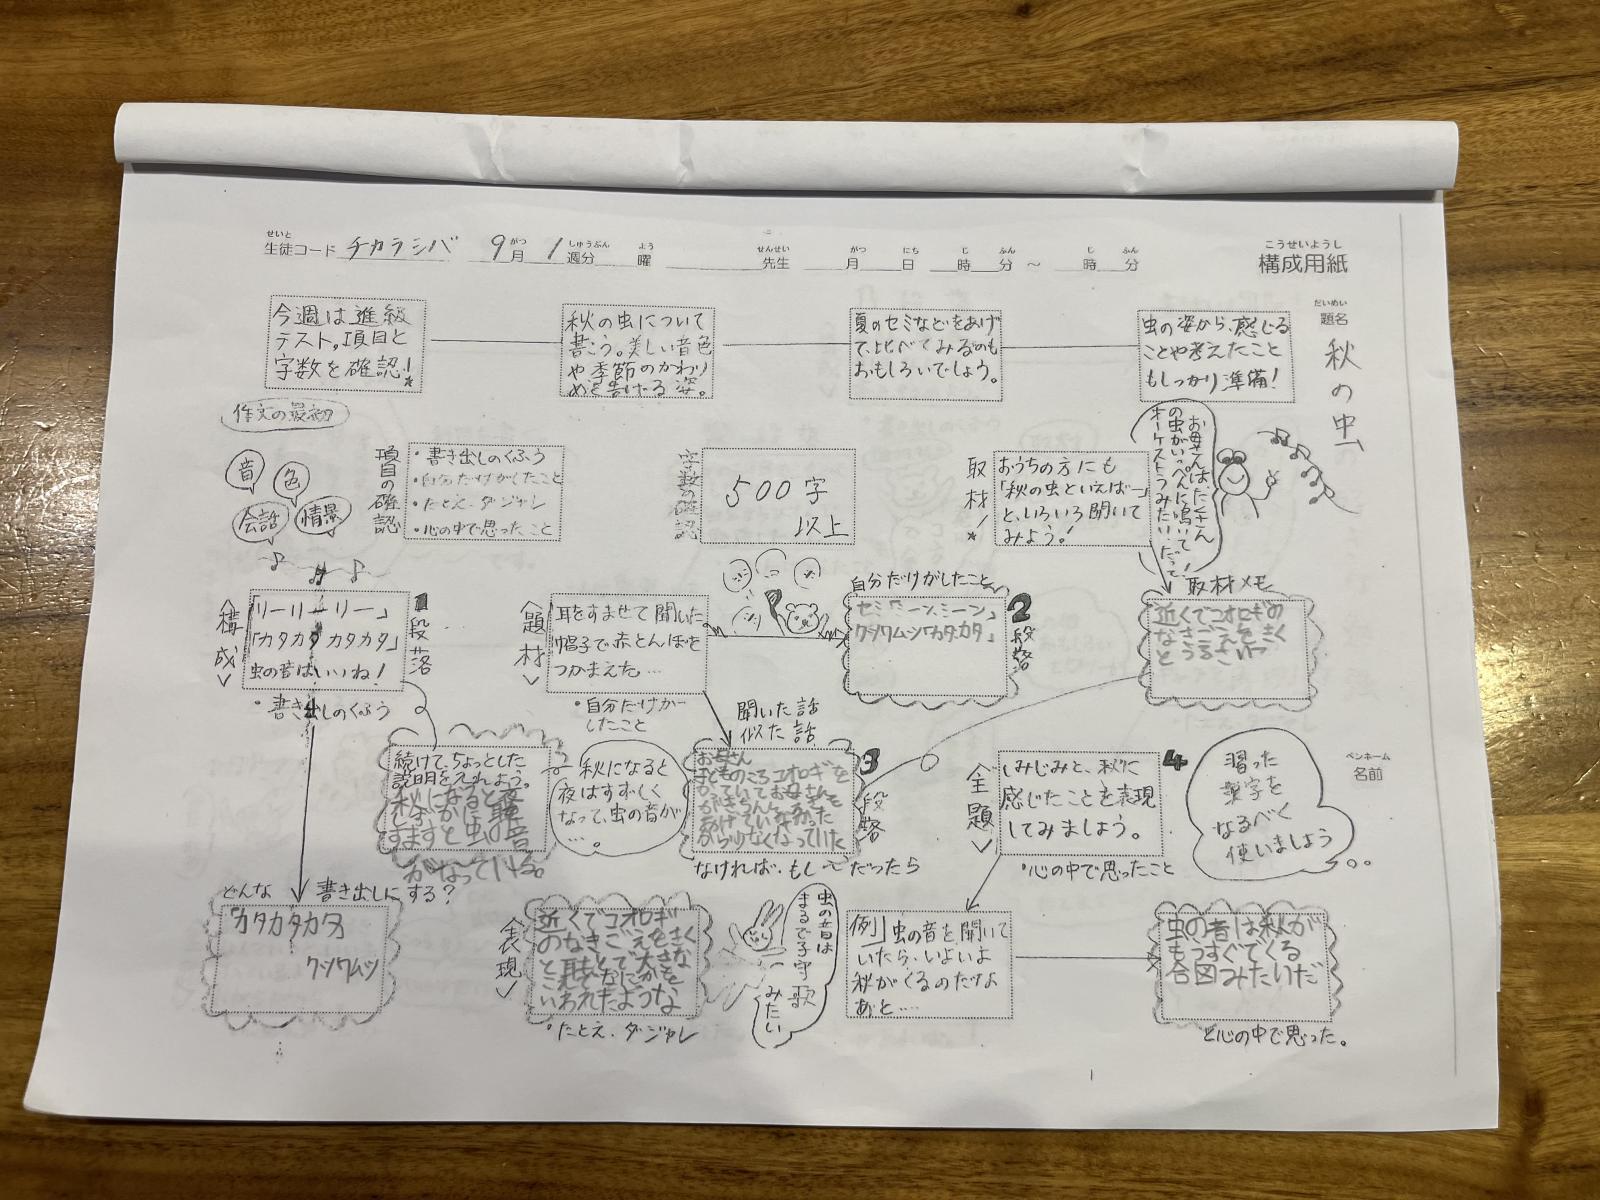 生徒コード チカラシバ 9月 1週分 曜 先生 月 日 時 分 ～ 時 分
せいと がつ しゅうぶん よう せんせい がつ にち じ ふん じ ふん
こうせいようし
構成用紙
だいめい
題名
秋の虫
ペンネーム
名前
今週は進級
テスト。項目と
字数を確認!
秋の虫について
書こう。美しい音色
や季節のかわり
めを告げる姿。
夏のセミなどをあげ
て、比べてみるのも
おもしろいでしょう。
虫の姿から、感じる
ことや考えたこと
もしっかり準備!
作文の最初
音
色
会話
情景
項目の確認
・書き出しのくふう
・自分だけがしたこと
・たとえ・ダジャレ
・心の中で思ったこと
字数の確認
500字
以上
取材!
おうちの方にも
「秋の虫といえば—」
と、いろいろ聞いて
みよう!
お母さんは、たくさん
の虫がいっぺんに鳴いて!
オーケストラみたい、だって!
取材メモ
近くでコオロギの
なきごえをきく
とうるさいっ
〈構成〉
1段落
「リーリーリー」
「カタカタカタカタ」
虫の音はいいね!
・書き出しのくふう
〈題材〉
耳をすませて聞いた
帽子で赤とんぼを
つかまえた…
・自分だけが
したこと
自分だけがしたこと
2段落
セミ「ミーンミーン」
クツワムシ「カタカタ」
続けて、ちょっとした
説明を入れよう。
秋になると夜
すますと虫の音
がなっている。
秋になると
夜はすずしく
なって、虫の音が
…。
聞いた話
似た話
3段落
お母さん
子どものころコオロギを
かっていてお母さんも
なければ・もし～だったら
〈主題〉
4
しみじみと、秋に
感じたことを表現
してみましょう。
・心の中で思ったこと
習った
漢字を
なるべく
使いましょう
どんな 書き出しにする?
「カタカタカタ」
クツワムシ
〈表現〉
近くでコオロギ
のなきごえをきく
と耳もとで大きな
こえでなにかを
いわれたような
・たとえ・ダジャレ
虫の音は
まるで子守歌
みたい
例」虫の音を聞いて
いたら、いよいよ
秋がくるのだな
あと…
虫の音は秋が
もうすぐでくる
合図みたいだ
と心の中で思った。